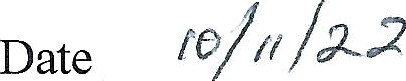 Date 10/11/22